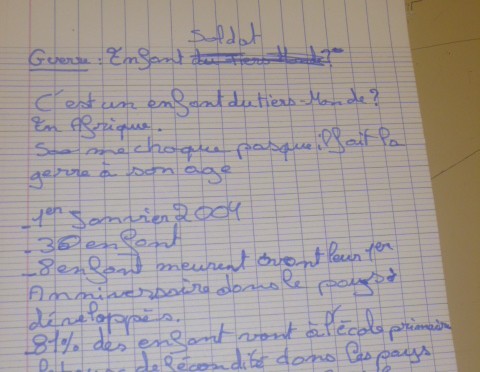 Soldat
Guerre : Enfant du tiers Monde ?
C'est un enfant du tiers-Monde ?
En Afrique.
Sa me choque pasque il fait la
gerre à son age
-1er Janvier 2004
-36 enfant
-8 enfant meurent avant leur 1er
Anniversaire dans le pays
développés.
-81% des enfant vont à l'école primaire
de fécondité dans les pays